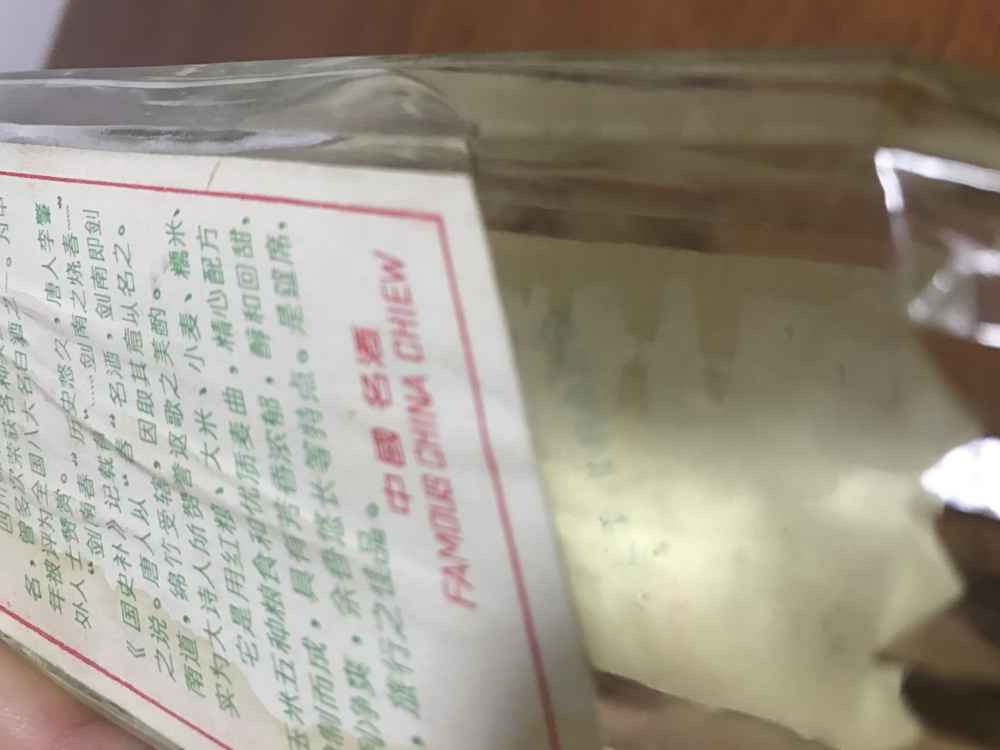 名,曾多次荣获各种
年被评为全国八大名白酒之一。
外人士赞赏。
"剑南春"历史悠久,唐人李肇
《国史补》记载"……剑南之烧春……"
之说。唐人以"春"名酒,剑南即剑
南道,绵竹受辖,因取其意以名之。
实为大诗人所赞誉讴歌之美酌。
它是用红粮、大米、小麦、糯米、
玉米五种粮食和优质麦曲,精心配方
酿制而成,具有芳香浓郁,醇和回甜、
冽净爽,余香悠长等特点。是筵席、
,旅行之佳品。
中國名酒
FAMOUS CHINA CHIEW